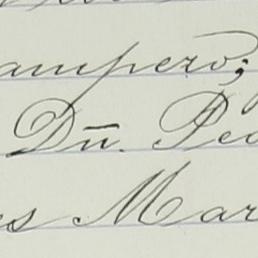 ampero;
Dn. Pe
es Mar